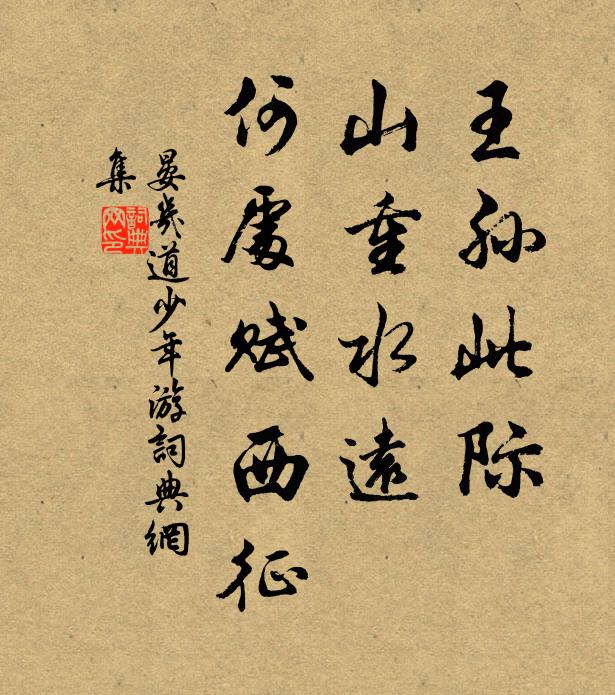 王孙此际
山重水遠
何處赋西征
晏幾道少年游詞典網
集
詞典
网印